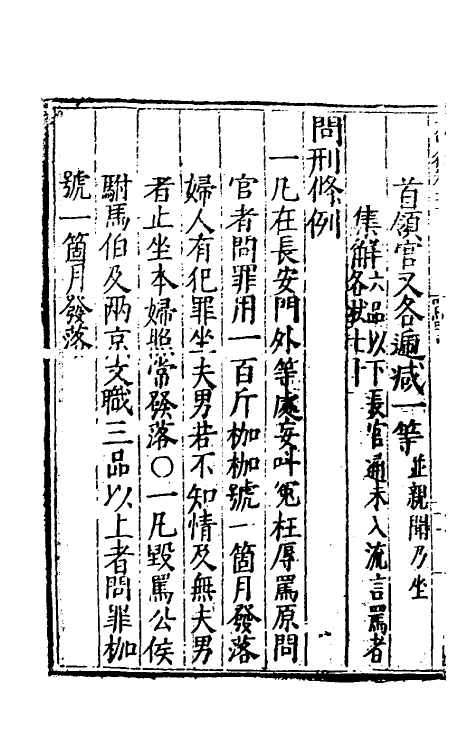 首領官又各遞减一等並親聞乃坐
集解六品以下長官通未入流言罵者
各杖七十
問刑條例
一凡在長安門外等處妄叫冤枉辱罵原問
官者問罪用一百斤枷枷號一箇月發落
婦人有犯罪坐夫男若不知情及無夫男
者止坐本婦照常發落○一凡毀罵公侯
駙馬伯及兩京文職三品以上者問罪枷
號一箇月發落